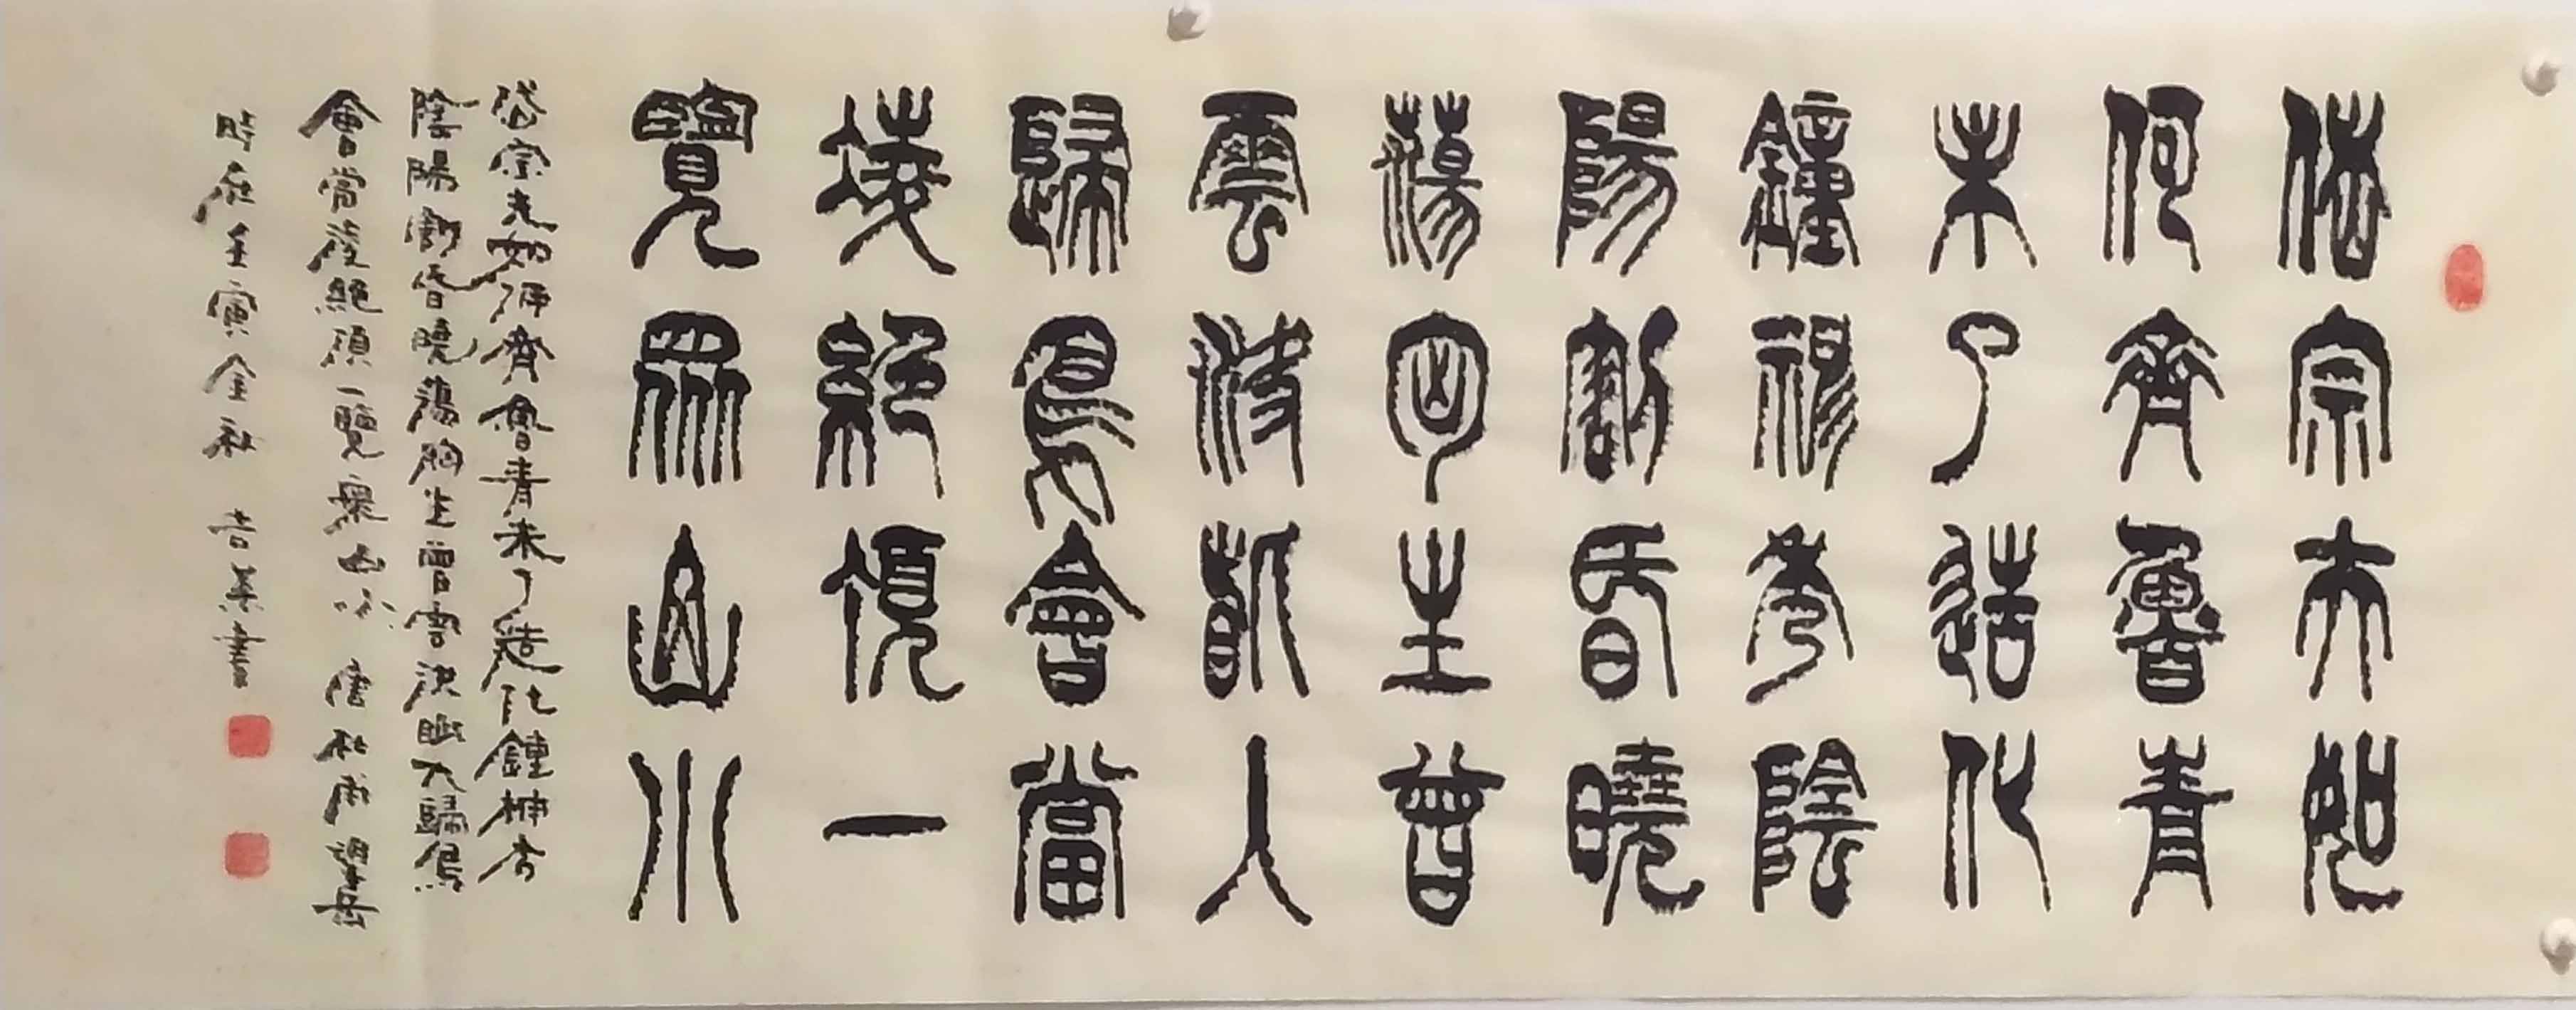 岱宗夫如
何齊魯青
未了造化
鍾神秀陰
陽割昏曉
蕩胸生曾
雲決眥入
歸鳥會當
凌絕頂一
覽眾山小
岱宗夫如何齊魯青未了造化鍾神秀
陰陽割昏曉蕩胸生曾雲決眥入歸鳥
會當凌絕頂一覽眾山小 唐杜甫望岳
時在壬寅金秋 吉英書